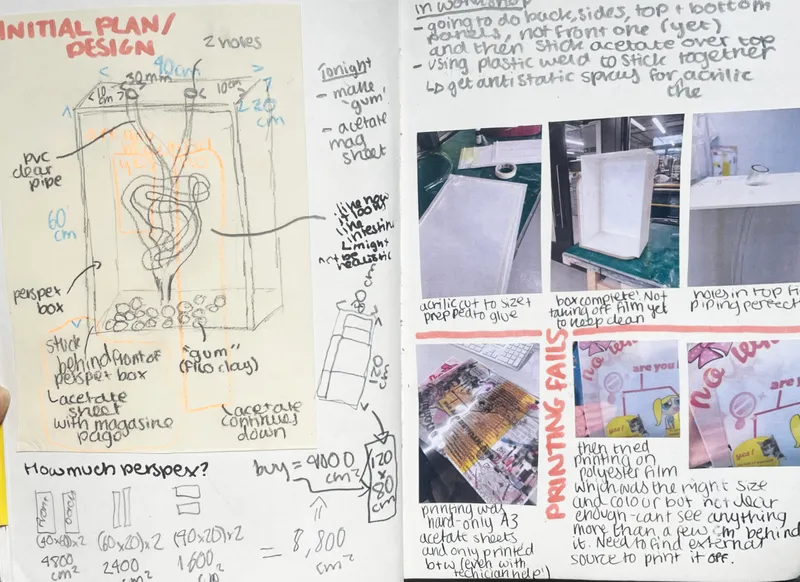 INITIAL PLAN/
DESIGN
2 holes
40cm
30mm
10cm
10cm
20
cm
Tonight
- make
"gum"
- acetate
mag
sheet
pvc
clear
pipe
60
cm
perspex
box
stick
behind front of
perspex box
↳ acetate
sheet
with magasine
page
"gum"
(fimo clay)
↳ acetate
continues
down
like how
it looks
like intestines
↳ might
not be
realistic
80 cm
120
How much perspex?
buy = 9000
cm²
120
x
80
cm
Front
(60x40)x2
(60x20)x2
(40x20)x2
4800
cm²
2400
cm²
1600
cm²
= 8,800
cm²
in workshop
- going to do back, sides, top + bottom
panels, not front one (yet)
and then stick acetate over top
- using plastic weld to stick together
↳ get anti static spray for acrilic
the
acrilic cut to size +
prepped to glue
box complete! Not
taking off film yet
to keep clean
holes in top fi
piping perfect
PRINTING FAILS
are you
yes!
are y
yes!
printing was
hard - only A3
acetate sheets
and only printed
b+w (even with
technician help!)
then tried
printing on
polyester film
which was the right size
and colour but not clear
enough - cant see anything
more than a few cm behind
it. Need to find external
source to print it off.